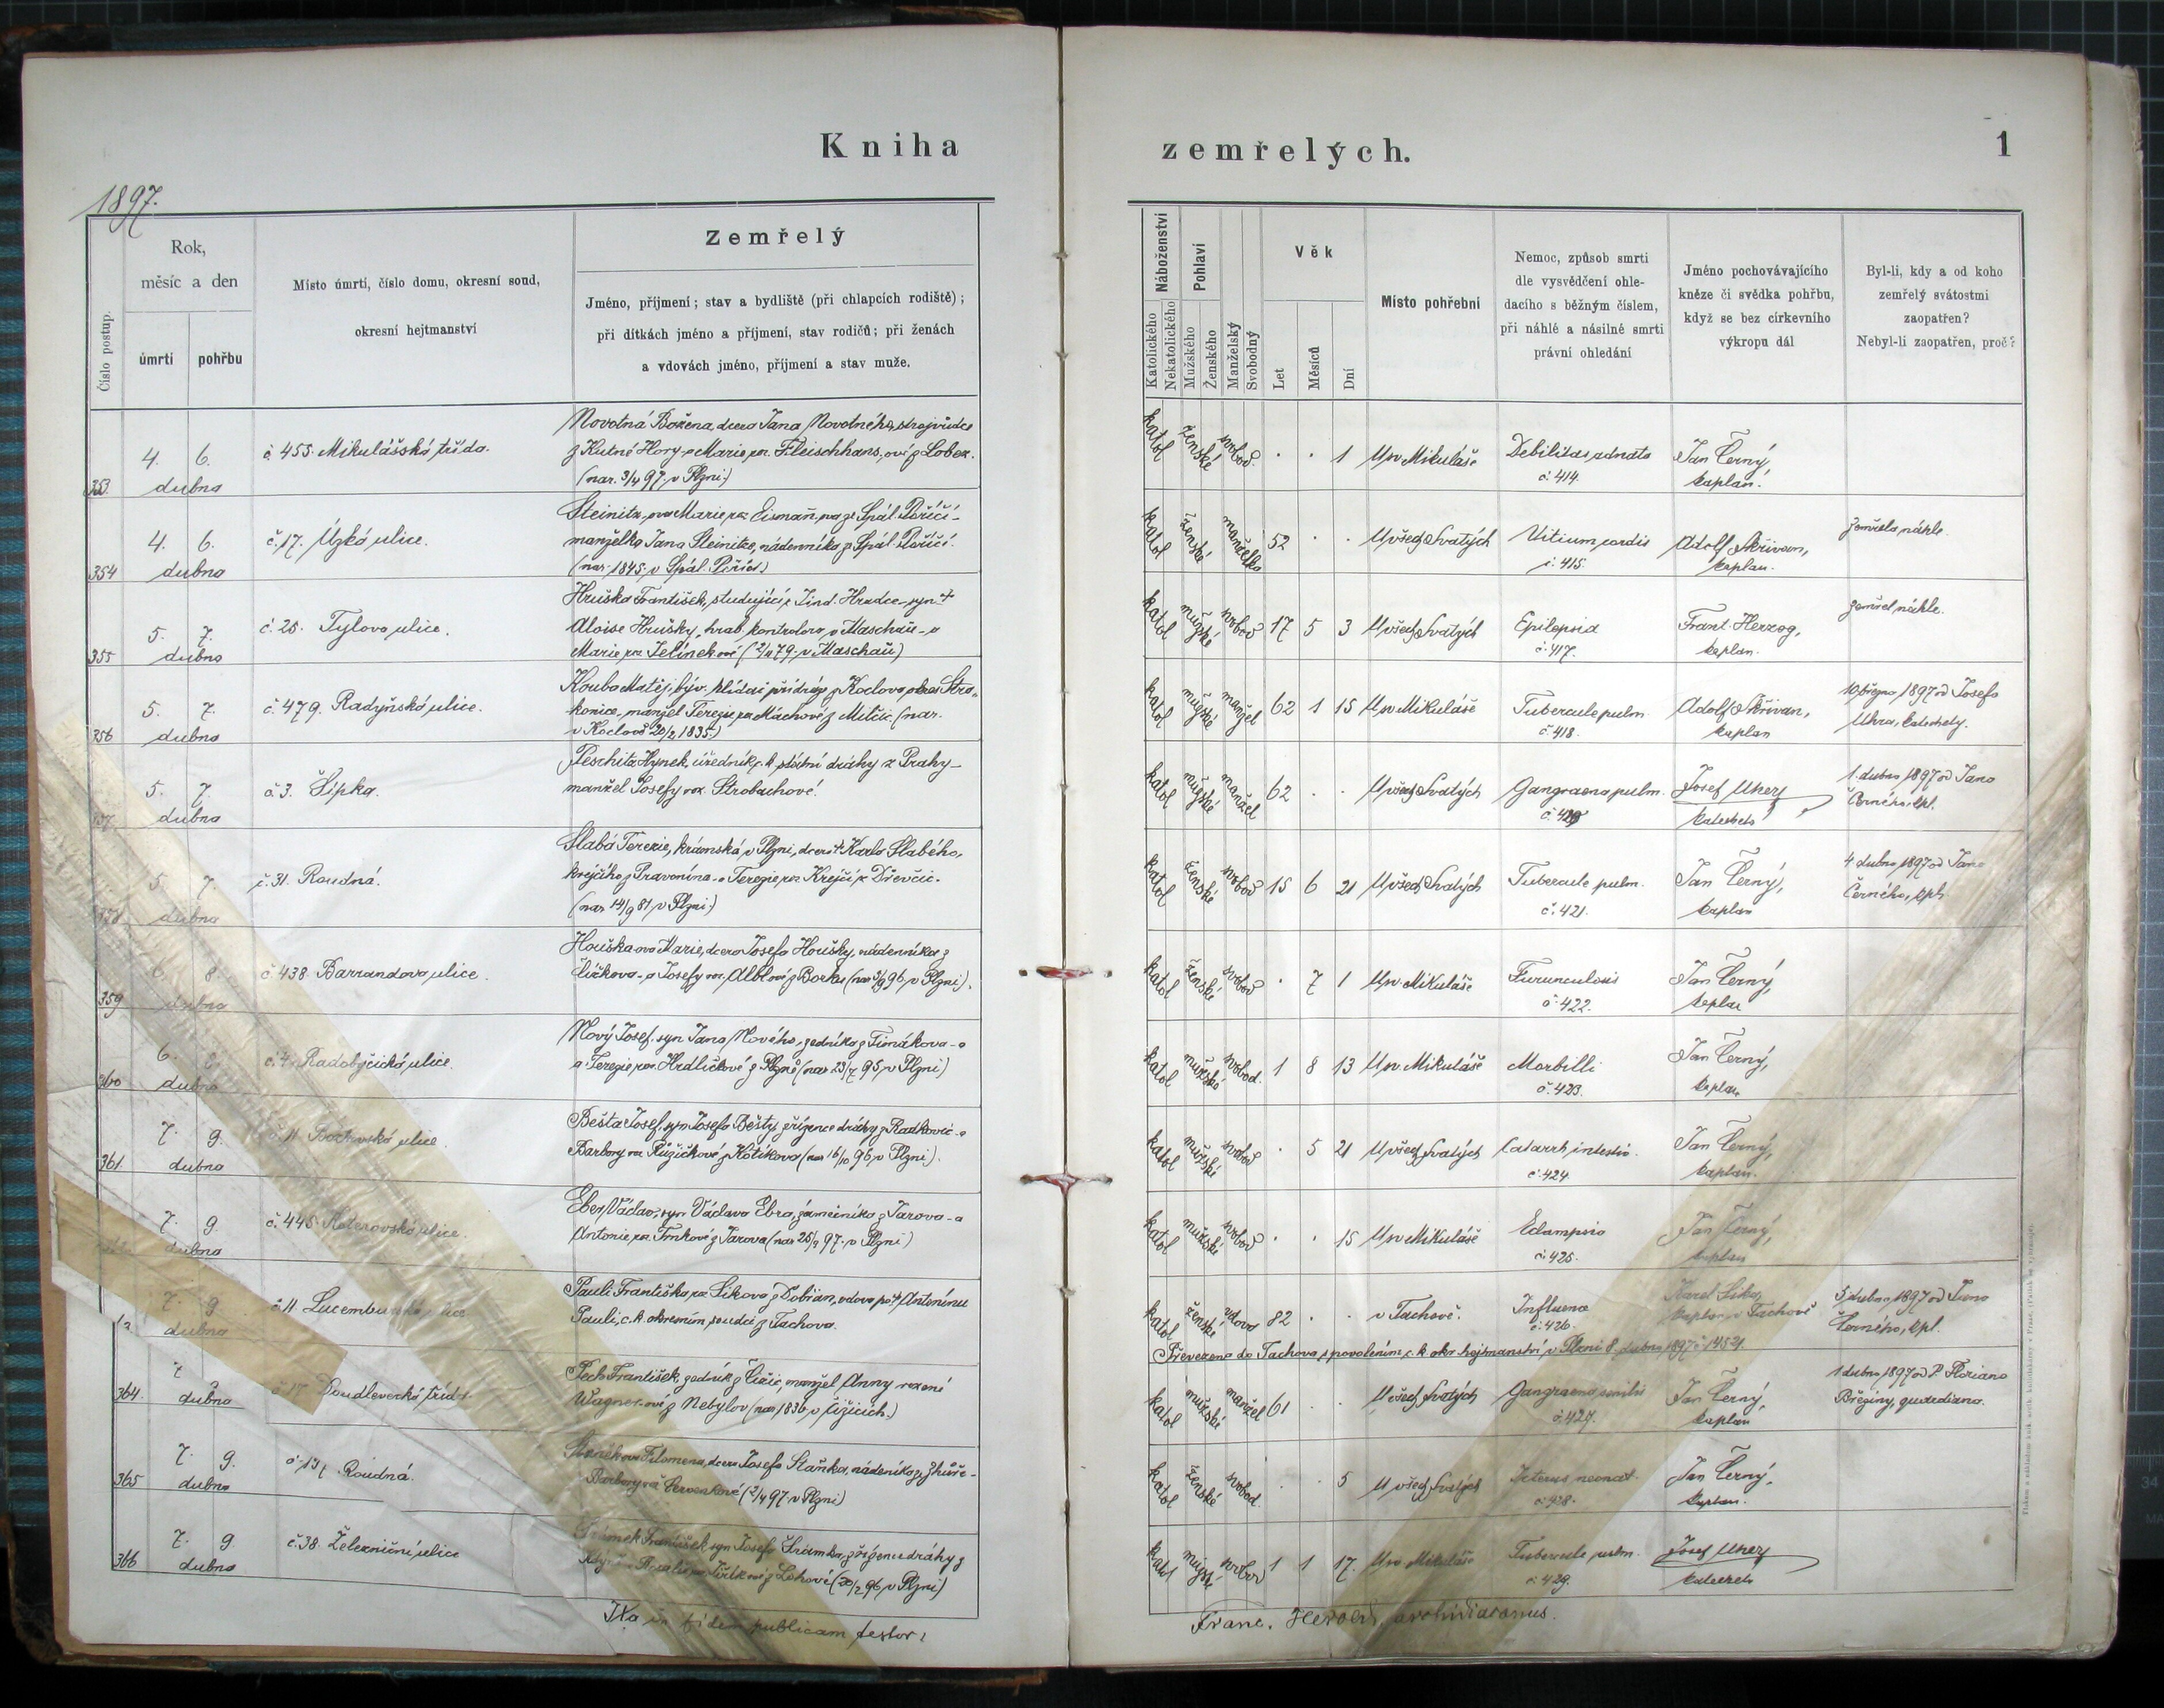 Kniha
zemřelých.
1
1897.
Číslo postup.
Rok,
měsíc a den
úmrtí
pohřbu
Místo úmrtí, číslo domu, okresní soud,
okresní hejtmanství
Zemřelý
Jméno, příjmení; stav a bydliště (při chlapcích rodiště);
při dítkách jméno a příjmení, stav rodičů; při ženách
a vdovách jméno, příjmení a stav muže.
Náboženství
Katolického
Nekatolického
Pohlaví
Mužského
Ženského
Manželský
Svobodný
Věk
Let
Měsíců
Dní
Místo pohřební
Nemoc, způsob smrti
dle vysvědčení ohle-
dacího s běžným číslem,
při náhlé a násilné smrti
právní ohledání
Jméno pochovávajícího
kněze či svědka pohřbu,
když se bez církevního
výkropu dál
Byl-li, kdy a od koho
zemřelý svátostmi
zaopatřen?
Nebyl-li zaopatřen, proč?
353. 4. 6. dubna
č. 455. Mikulášská třída.
Novotná Božena, dcera Jana Novotného, strojvůdce
z Kutné Hory, a Marie roz. Fleischhans, ové z Lobez.
(nar. 3/4 97. v Plzni)
katol ženské svobod. . . 1 U sv. Mikuláše
Debilitas adnata
č. 414.
Jan Černý,
kaplan.
354 4. 6. dubna
č. 17. Úzká ulice.
Steinitz, ova Marie roz. Eismañ, ova ze Spál. Poříčí -
manželka Jana Steinitze, nádenníka z Spál. Poříčí.
(nar. 1845. v Spál. Poříčí)
katol ženské manželka 52 . . U všech Svatých
Vitium cordis
č. 415.
Adolf Skřivan,
kaplan.
Zemřela náhle.
355 5. 7. dubna
č. 25. Tylova ulice.
Hruška František, studující z Jind. Hradce - syn †
Aloise Hrušky, hrab. kontrolora v Maschau - a
Marie roz. Jelínekové (2/11 79. v Maschau)
katol mužské svobod 17 5 3 U všech Svatých
Epilepsia
č. 417.
Frant. Herzog,
kaplan.
Zemřel náhle.
356 5. 7. dubna
č. 479. Radyňská ulice.
Kouba Matěj, býv. hlídač při dráze z Koclova okres Stra-
konice - manžel Terezie roz. Máchové z Milčic (nar.
v Koclově 20/2 1835.)
katol mužské manžel 62 1 15 U sv. Mikuláše
Tubercule pulm.
č. 418.
Adolf Skřivan,
kaplan
10. března 1897 od Josefa
Uhra, katechety.
5. 7. dubna
č. 3. Šipka.
Peschita Hynek, úředník c. k. státní dráhy z Prahy -
manžel Josefy roz. Strobachové.
katol mužské manžel 62 . . U všech Svatých
Gangraena pulm.
Josef Uher,
katecheta
1. dubna 1897 od Jana
Černého, kpl.
5 7. dubna
č. 31. Roudná.
Slabá Terezie, krámská v Plzni, dcera † Karla Slabého,
krejčího z Pravonína - a Terezie roz. Krejčí z Dřevčic.
(nar. 14/9 81 v Plzni)
katol ženské svobod 15 6 21 U všech Svatých
Tubercule pulm.
č. 421.
Jan Černý,
kaplan
4 dubna 1897 od Jana
Černého, kpl.
359 8. dubna
č. 438. Barrandova ulice.
Houška ova Marie, dcera Josefa Houšky, nádenníka z
- a Josefy roz. Alblové z Borku (nar. 5/9 96. v Plzni).
katol ženské svobod . 7 1 U sv. Mikuláše
Furunculosis
č. 422.
Jan Černý,
kaplan
360 6. 8. dubna
č. 4. Radobyčická ulice.
Nový Josef, syn Jana Nového, zedníka z - a
a Terezie roz. Hrdličkové z Plzně (nar. 23/7 95. v Plzni)
katol mužské svobod. 1 8 13 U sv. Mikuláše
Morbilli
č. 423.
Jan Černý,
kaplan
361. 7. 9. dubna
č. 11. ulice.
Bešta Josef, syn Josefa Bešty, zřízence dráhy z Radkovic - a
Barbory roz. Růžičkové z Kotíkova (nar. 16/10 96. v Plzni).
katol mužské svobod . 5 21 U všech Svatých
Catarrh intestin.
č. 424.
Jan Černý,
kaplan.
7. 9. dubna
č. 445. Koterovská ulice.
Eber Václav, syn Václava Ebra, zámečníka z Tarova - a
Antonie roz. Frnkové z Tarova (nar. 25/3 97. v Plzni)
katol mužské svobod . . 15 U sv. Mikuláše
Eclampsia
č. 425.
Jan Černý,
kaplan
7. 9. dubna
č. 11. Lucemburská ulice
Pauli Františka roz. Síková z Dobřan, vdova po † Antonínu
Pauli, c. k. okresním soudci z Tachova.
katol ženské vdova 82 . . v Tachově.
Influena
č. 426.
Karel
kaplan v Tachově
5 dubna 1897 od Jana
Černého, kpl.
Převezena do Tachova s povolením c. k. okr. hejtmanství v Plzni 8. dubna 1897 č. 14521.
364. 7. 9. dubna
č. 17. Doudlevecká třída.
Pech František, zedník z Čižic, manžel Anny rozené
Wagner-ové z Nebylov (nar. 1836 v Čižicích.)
katol mužské manžel 61 . . U všech Svatých
Gangraena senilis
č. 427.
Jan Černý,
kaplan
1 dubna 1897 od P. Floriana
Březiny, quardiana.
365 7. 9. dubna
č. 131. Roudná.
Staňkova Filomena, dcera Josefa Staňka, nádeníka z Zhůře -
Barbory roz. Červenkové (2/4 97. v Plzni)
katol ženské svobod. . 5 U všech Svatých
Icterus neonat.
č. 428.
Jan Černý,
kaplan.
366 7. 9. dubna
č. 38. Železniční ulice
Šrámek František, syn Josefa Šrámka, zřízence dráhy z
Kdyně a Rosalie roz. z Lohové (20/2 96. v Plzni)
katol mužské svobod 1 1 17. U sv. Mikuláše
Tubercule pulm.
č. 429.
Josef Uher,
katecheta
Ita in fidem publicam testor:
Franc. Herold, archidiaconus.